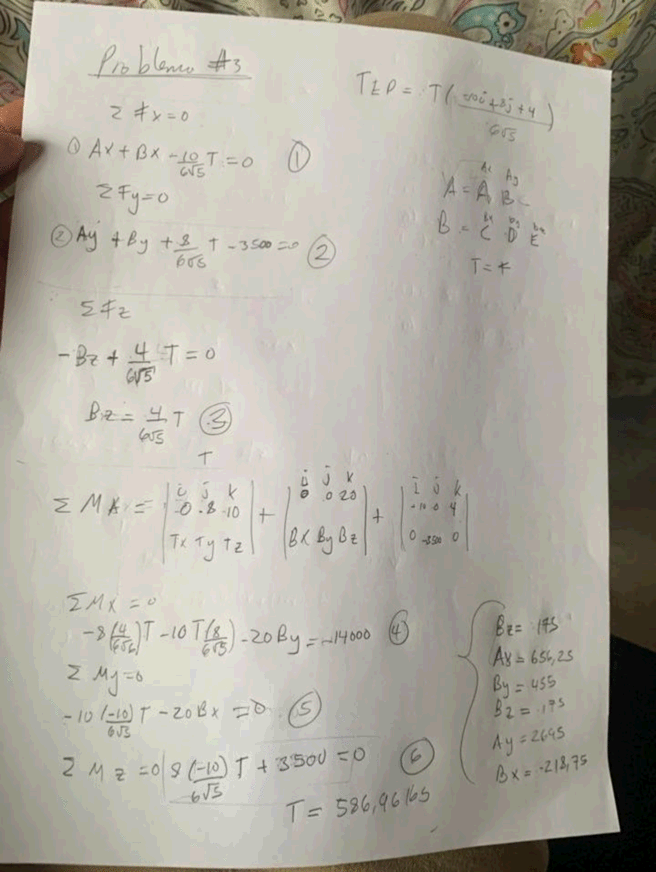 Problema #3
TED = T(-10i+8j+4 / 6√5)
ΣFx=0
① Ax + Bx - 10/6√5 T = 0 ①
ΣFy=0
② Ay + By + 8/6√5 T - 3500 = 0 ②
A = A B
Ax Ay
B = C D E
Bx By Bz
T = F
ΣFz
-Bz + 4/6√5 T = 0
Bz = 4/6√5 T ③
T
ΣMA = | i j k | + | i j k | + | i j k |
0 -8 -10
0 0 20
-10 0 4
Tx Ty Tz
Bx By Bz
0 -3500 0
ΣMx = 0
-8(4/6√5)T - 10T(8/6√5) - 20By = -14000 ④
ΣMy=0
-10(-10)/6√5 T - 20Bx = 0 ⑤
ΣMz = 0 | 8(-10)/6√5 T + 3500 = 0 ⑥
T = 586,96165
Bz = 175
Ax = 656,25
By = 455
Bz = 175
Ay = 2695
Bx = -218,75